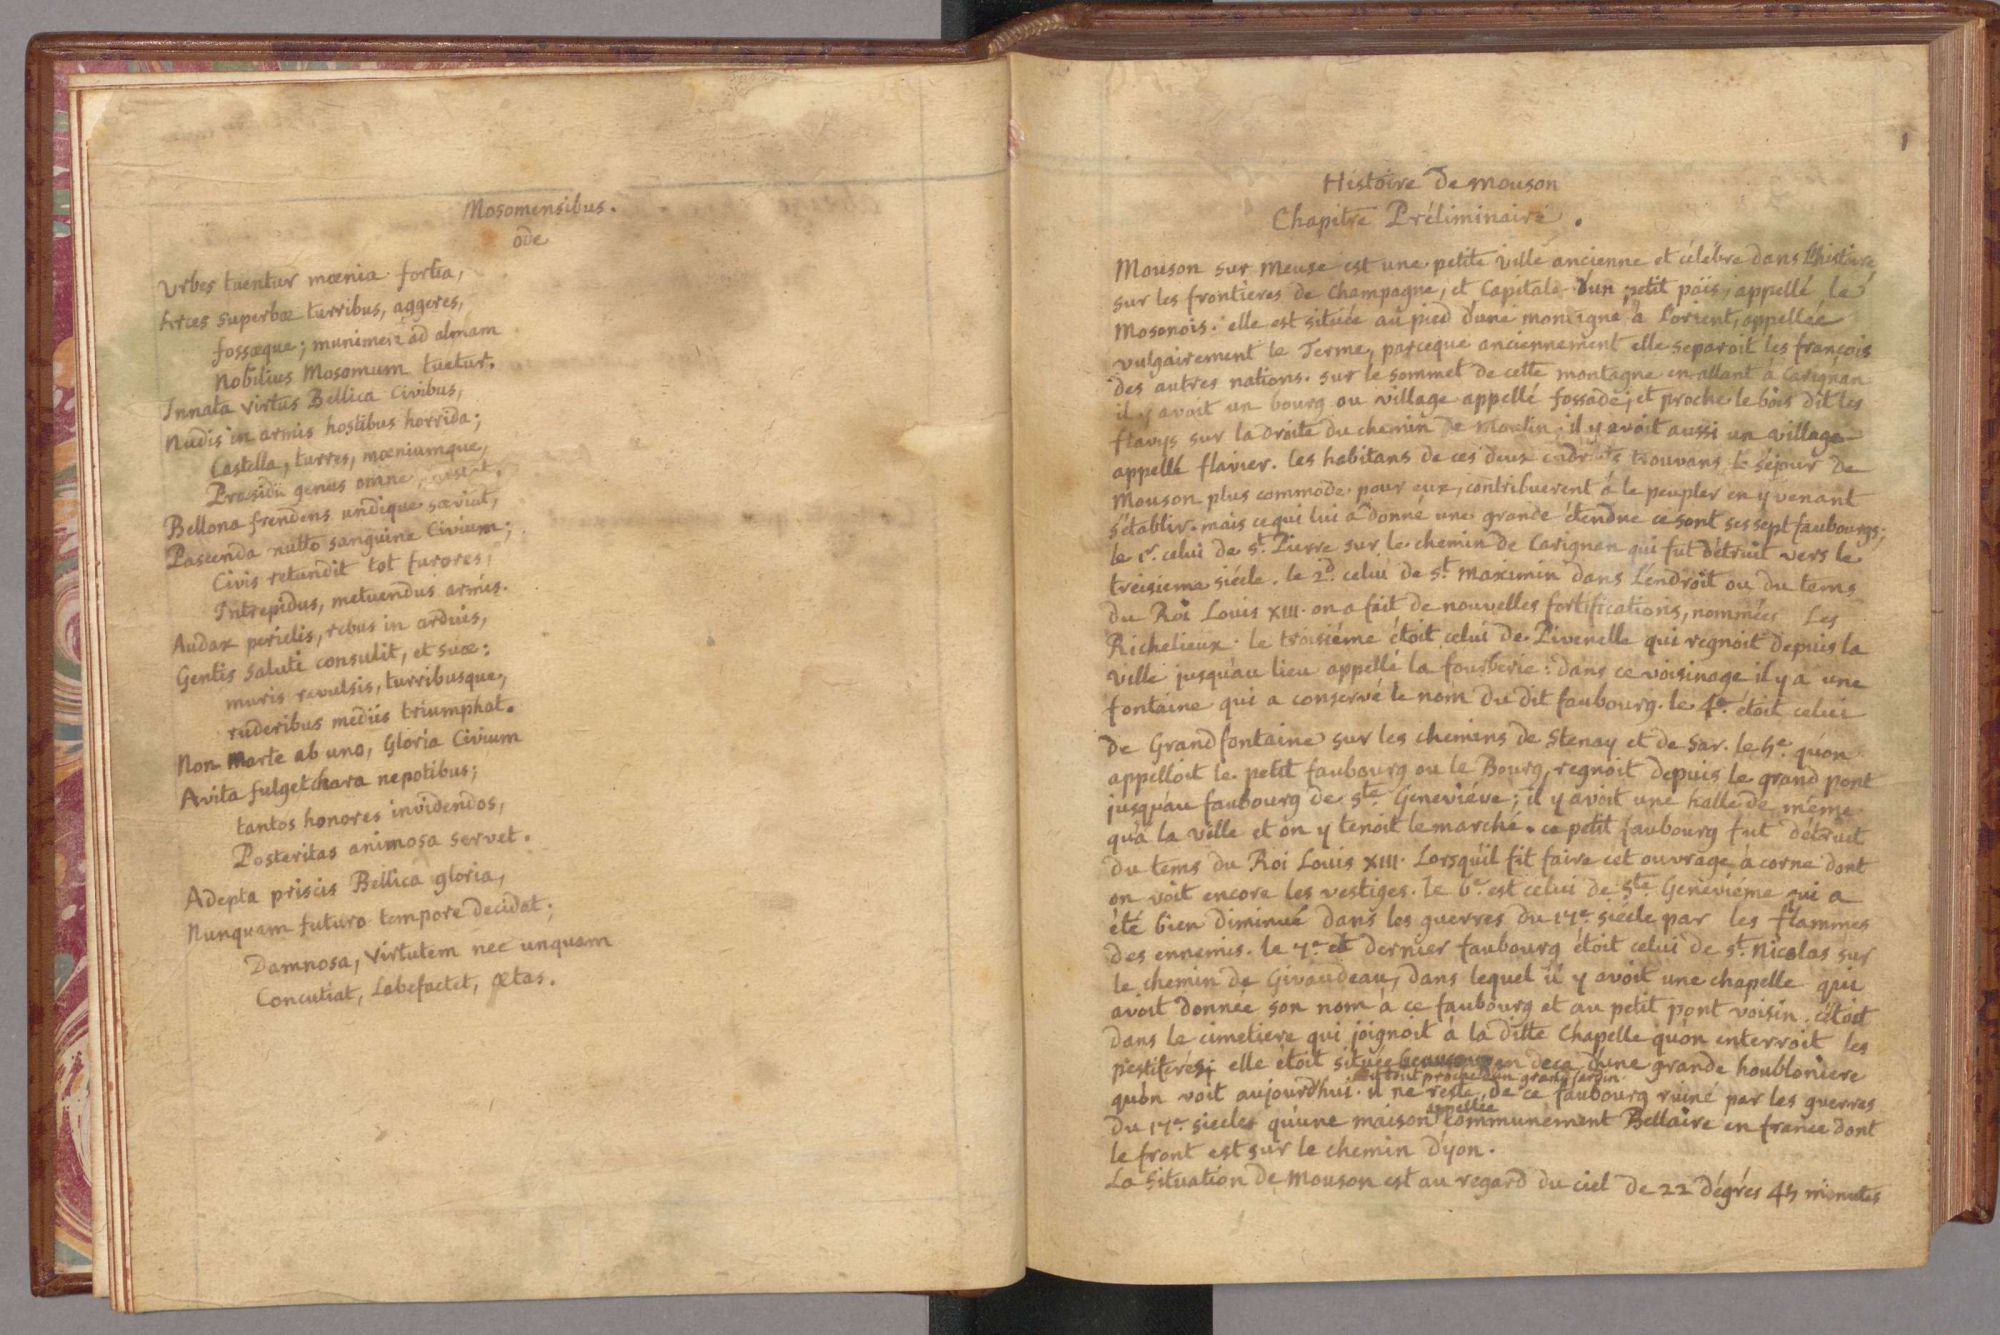 Mosomensibus.
ode
Urbes tuentur mœnia fortia,
Arces superbæ turribus, aggeres,
fossæque; munimen ad almam
nobilius Mosomum tuetur.
Innata virtus Bellica Civibus,
Nudis in armis hostibus horrida;
Castella, turres, mœniumque,
Præsidii genus omne,
Bellona frendens undique sæviat,
Pascenda nullo sanguine Civium;
Civis retundit tot furores,
Intrepidus, metuendus armis.
Audax periclis, rebus in arduis,
Gentis saluti consulit, et suæ:
muris revulsis, turribusque,
ruderibus mediis triumphat.
Non Marte ab uno, Gloria Civium
Avita fulget chara nepotibus;
tantos honores invidendos,
Posteritas animosa servet.
Adepta priscis Bellica gloria,
Nunquam futuro tempore decidat;
Damnosa, virtutem nec unquam
Concutiat, Labefactet, ætas.
1
Histoire de mouson
Chapitre Préliminaire.
Mouson sur Meuse est une petite ville ancienne et célébre dans L'histoire
sur les frontieres de Champagne, et Capitale d'un petit païs, appellé le
Mosonois. elle est située au pied d'une montagne à L'orient, appellée
vulgairement le Terme, parceque anciennement elle separoit les françois
des autres nations. sur le sommet de cette montagne en allant à Carignan
il y avoit un bourg ou village appellé fossade, et proche le bois dit les
flavys sur la droite du chemin de Moulin, il y avoit aussi un village
appellé flavier. les habitans de ces deux endroits trouvans le séjour de
Mouson plus commode pour eux, contribuerent à le peupler en y venant
s'établir. mais ce qui lui a donné une grande étendue ce sont ses sept faubourgs;
le 1er. celui de St. Pierre sur le chemin de Carignan qui fut détruit vers le
treisieme siécle. le 2d. celui de St. Maximin dans L'endroit ou du tems
du Roi Louis XIII. on a fait de nouvelles fortifications, nommées Les
Richelieux. le troisiéme étoit celui de Pivenelle qui regnoit depuis la
ville jusqu'au lieu appellé la fourberie: dans ce voisinage il y a une
fontaine qui a conservé le nom du dit faubourg. le 4e. étoit celui
de Grandfontaine sur les chemins de Stenay et de Sar. le 5e. qu'on
appelloit le petit faubourg ou le Bourg, regnoit depuis le grand pont
jusqu'au faubourg de Ste. Geneviéve; il y avoit une halle de même
qu'à la ville et on y tenoit le marché. ce petit faubourg fut détruit
du tems du Roi Louis XIII. Lorsqu'il fit faire cet ouvrage à corne dont
on voit encore les vestiges. le 6e. est celui de Ste. Geneviéme qui a
été bien diminué dans les guerres du 17e. siécle par les flammes
des ennemis. le 7e. et dernier faubourg étoit celui de St. Nicolas sur
le chemin de Givaudeau, dans lequel il y avoit une chapelle qui
avoit donnée son nom à ce faubourg et au petit pont voisin. c'étoit
dans le cimetiere qui joignoit à la ditte Chapelle qu'on enterroit les
pestiferés; elle étoit située beaucoup en deça d'une grande houbloniere
tout proche d'un grand jardin
qu'on voit aujourdhui. il ne reste de ce faubourg ruiné par les guerres
du 17e. siecles qu'une maison appellée communement Bellaire en france dont
le front est sur le chemin d'yon.
La Situation de Mouson est au regard du ciel de 22 dégrés 45 minutes